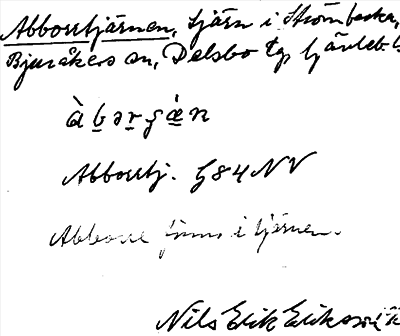 Abborrtjärnen, tjärn i Strömbacka,
Bjuråkers sn, Delsbo tg, Gävleb. l.
Abborrtj. G84NV
Abborre finns i tjärnen.
Nils Erik Eriksson